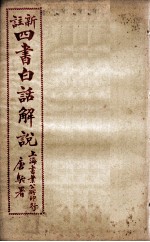 新註
四書白話解說
上海書業公所印行
唐駝署